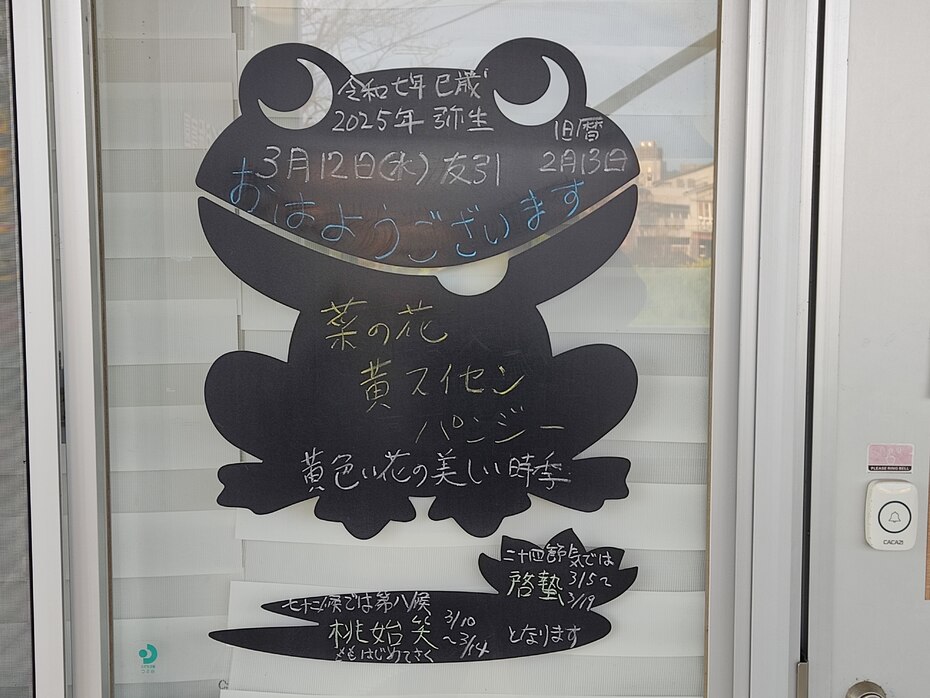 令和七年 巳歳
2025年 弥生
旧暦
3月12日(水) 友引 2月13日
おはようございます
菜の花
黄スイセン
パンジー
黄色い花の美しい時季
二十四節気では
啓蟄 3/5〜
3/19
七十二候では第八候
桃始笑 3/10
〜3/14 となります
ももはじめてさく
PLEASE RING BELL
CACAZI